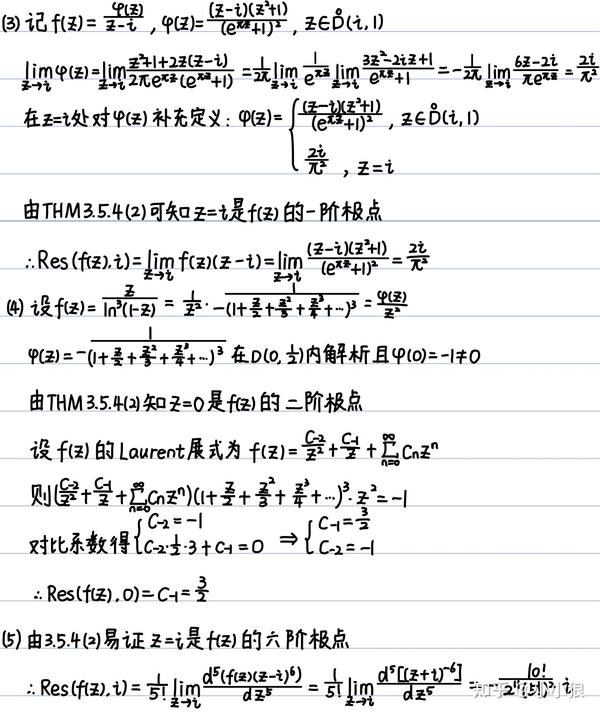 (3) 记 f(z) = φ(z)/(z-i) , φ(z) = (z-i)(z²+1)/(e^{πz}+1)² , z∈D̊(i,1)
lim_{z→i} φ(z) = lim_{z→i} (z²+1+2z(z-i))/(2πe^{πz}(e^{πz}+1)) = 1/(2π) lim_{z→i} 1/e^{πz} lim_{z→i} (3z²-2iz+1)/(e^{πz}+1) = -1/(2π) lim_{z→i} (6z-2i)/(πe^{πz}) = 2i/π²
在z=i处对φ(z)补充定义: φ(z) = { (z-i)(z²+1)/(e^{πz}+1)² , z∈D̊(i,1)
2i/π² , z=i
由THM3.5.4(2)可知z=i是f(z)的一阶极点
∴Res(f(z),i) = lim_{z→i} f(z)(z-i) = lim_{z→i} (z-i)(z²+1)/(e^{πz}+1)² = 2i/π²
(4) 设f(z) = z/ln³(1-z) = 1/z² · 1/-(1+z/2+z²/3+z³/4+…)³ = φ(z)/z²
φ(z) = -1/(1+z/2+z²/3+z³/4+…)³ 在D(0,1/2)内解析且φ(0)=-1≠0
由THM3.5.4(2)知z=0是f(z)的二阶极点
设f(z)的Laurent展式为 f(z) = C₋₂/z² + C₋₁/z + ∑_{n=0}^{∞} Cₙzⁿ
则(C₋₂/z² + C₋₁/z + ∑_{n=0}^{∞} Cₙzⁿ)(1+z/2+z²/3+z³/4+…)³·z² = -1
对比系数得 { C₋₂=-1 C₋₂·1/2·3+C₋₁=0 ⇒ { C₋₁=3/2 C₋₂=-1
∴Res(f(z),0) = C₋₁ = 3/2
(5) 由3.5.4(2)易证z=i是f(z)的六阶极点
∴Res(f(z),i) = 1/5! lim_{z→i} d⁵(f(z)(z-i)⁶)/dz⁵ = 1/5! lim_{z→i} d⁵[(z+i)⁻⁶]/dz⁵ = -10!/(2¹¹(5!)²) i